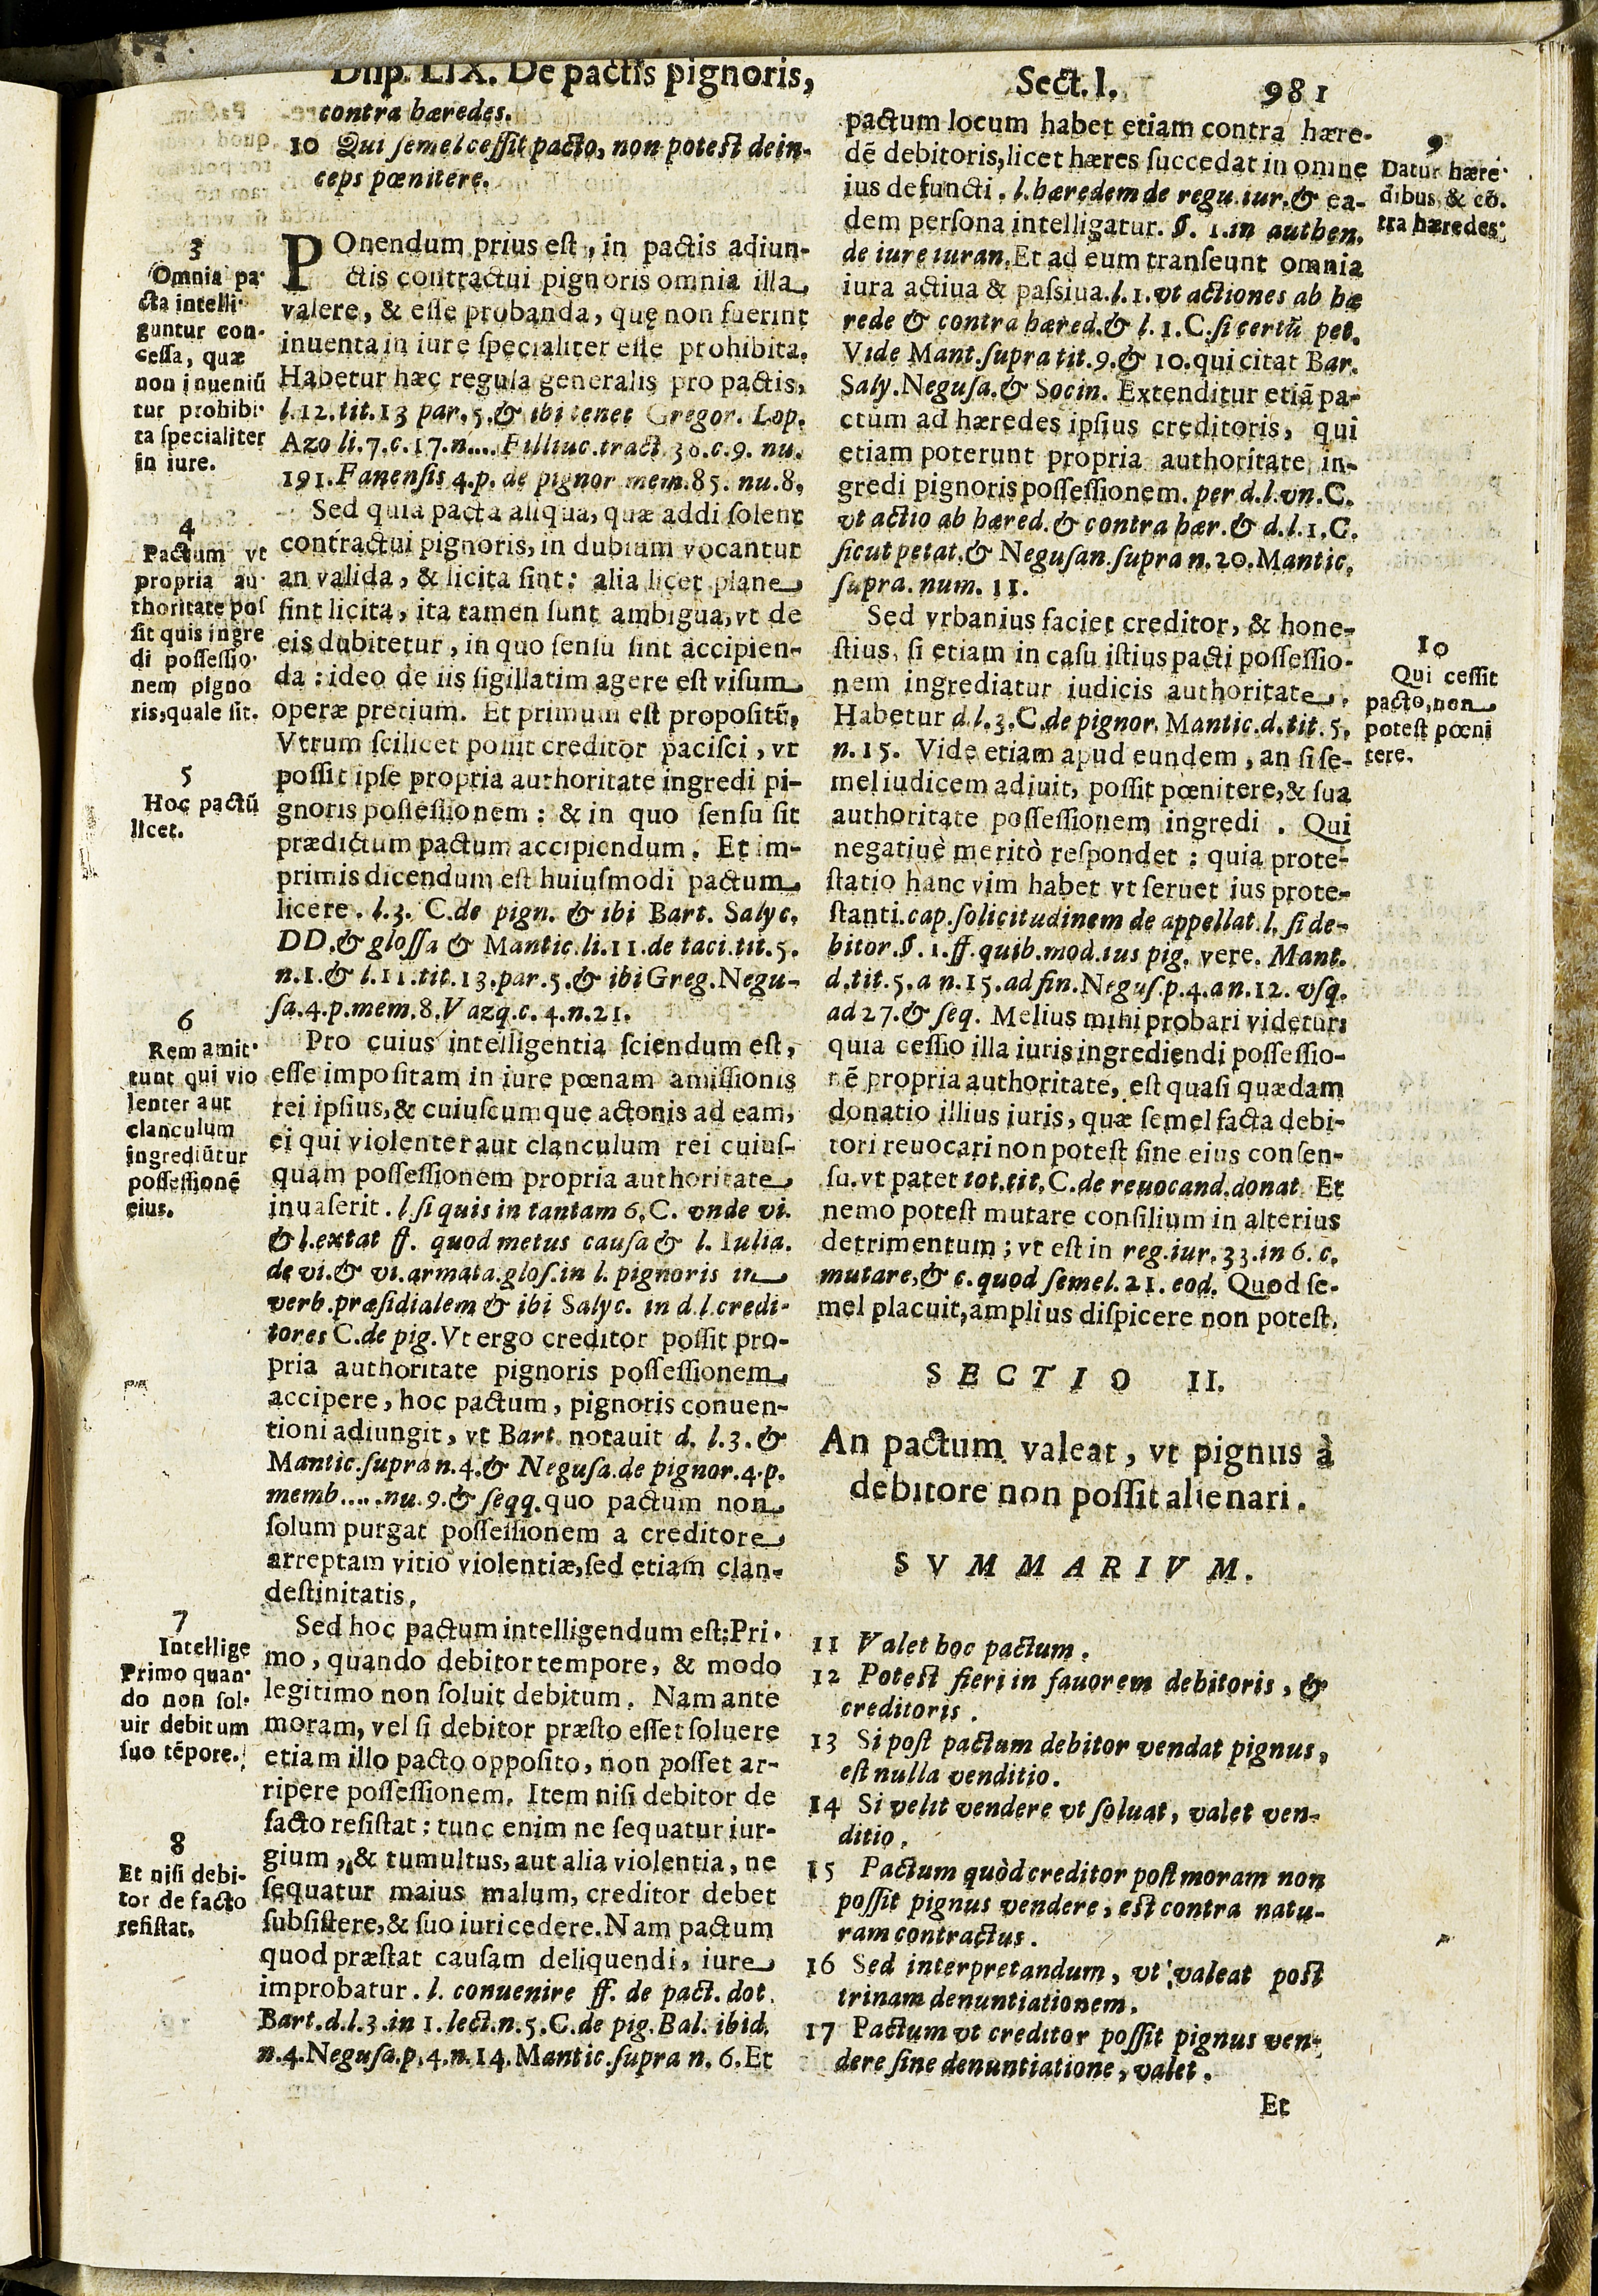 Disp. LIX. De pactis pignoris, Sect. I. 981
contra hæredes.
10 Qui semel cessit pacto, non potest dein-
ceps pœnitere.
3
Omnia pa-
cta intelli-
guntur con-
cessa, quæ
non inueniũ
tur prohibi-
ta specialiter
in iure.
POnendum prius est, in pactis adiun-
ctis contractui pignoris omnia illa
valere, & esse probanda, quę non fuerint
inuenta in iure specialiter esse prohibita.
Habetur hæc regula generalis pro pactis,
l.12.tit.13 par.5.& ibi tenet Gregor. Lop.
Azo li.7.c.17.n.... Filliuc.tract 36.c.9. nu.
191.Fanensis 4.p. de pignor mem.85. nu.8.
4
Pactum vt
propria au-
thoritate pos
sit quis ingre
di possessio-
nem pigno
ris,quale sit.
Sed quia pacta aliqua, quæ addi solent
contractui pignoris, in dubium vocantur
an valida, & licita sint: alia licet plane
sint licita, ita tamen sunt ambigua, vt de
eis dubitetur, in quo sensu sint accipien-
da: ideo de iis sigillatim agere est visum
operæ precium. Et primum est propositũ,
Vtrum scilicet possit creditor pacisci, vt
possit ipse propria authoritate ingredi pi-
gnoris possessionem: & in quo sensu sit
prædictum pactum accipiendum. Et im-
primis dicendum est huiusmodi pactum
licere. l.3. C.de pign. & ibi Bart. Salyc.
DD.& glossa & Mantic.li.11.de taci.tit.5.
n.1.& l.11.tit.13.par.5.& ibi Greg.Negu-
sa.4.p.mem.8.Vazq.c.4.n.21.
5
Hoc pactũ
licet.
6
Rem amit-
tunt qui vio
lenter aut
clanculum
ingrediũtur
possessionẽ
eius.
Pro cuius intelligentia sciendum est,
esse impositam in iure pœnam amissionis
rei ipsius,& cuiuscumque actonis ad eam,
ei qui violenter aut clanculum rei cuius-
quam possessionem propria authoritate
inuaserit. l.si quis in tantam 6.C. vnde vi.
& l.extat ff. quod metus causa & l. Iulia.
de vi.& vi.armata.glos.in l. pignoris in
verb.præsidialem & ibi Salyc. in d.l.credi-
tores C.de pig.Vt ergo creditor possit pro-
pria authoritate pignoris possessionem
accipere, hoc pactum, pignoris conuen-
tioni adiungit, vt Bart. notauit d. l.3.&
Mantic.supra n.4.& Negusa.de pignor.4.p.
memb.....nu.9.& seqq.quo pactum non
solum purgat possessionem a creditore
arreptam vitio violentiæ,sed etiam clan-
destinitatis.
7
Intellige
Primo quan-
do non sol-
uit debitum
suo tẽpore.
Sed hoc pactum intelligendum est:Pri-
mo, quando debitor tempore, & modo
legitimo non soluit debitum. Nam ante
moram, vel si debitor præsto esset soluere
etiam illo pacto opposito, non posset ar-
ripere possessionem. Item nisi debitor de
facto resistat: tunc enim ne sequatur iur-
gium, & tumultus, aut alia violentia, ne
sequatur maius malum, creditor debet
subsistere,& suo iuri cedere.Nam pactum
quod præstat causam deliquendi, iure
improbatur. l. conuenire ff. de pact. dot.
Bart.d.l.3.in 1.lect.n.5.C.de pig.Bal. ibid.
n.4.Negusa.p.4.n.14.Mantic.supra n. 6.Et
8
Et nisi debi-
tor de facto
resistat.
pactum locum habet etiam contra hære-
dẽ debitoris,licet hæres succedat in omne
ius defuncti. l.hæredem de regu.iur.& ea-
dem persona intelligatur. §. 1.in authen.
de iure iuran.Et ad eum transeunt omnia
iura actiua & passiua.l.1.vt actiones ab hæ
rede & contra hæred.& l. 1.C.si certũ pet.
Vide Mant.supra tit.9.& 10.qui citat Bar.
Saly.Negusa.& Socin. Extenditur etiã pa-
ctum ad hæredes ipsius creditoris, qui
etiam poterunt propria authoritate in-
gredi pignoris possessionem. per d.l.vn.C.
vt actio ab hæred.& contra hær.& d.l.1.C.
sicut petat.& Negusan.supra n.20.Mantic.
supra.num. 11.
9
Datur hære-
dibus, & cõ-
tra hæredes.
Sed vrbanius faciet creditor, & hone-
stius, si etiam in casu istius pacti possessio-
nem ingrediatur iudicis authoritate.
Habetur d.l.3.C.de pignor. Mantic.d.tit.5.
n.15. Vide etiam apud eundem, an si se-
mel iudicem adiuit, possit pœnitere,& sua
authoritate possessionem ingredi. Qui
negatiuè meritò respondet: quia prote-
statio hanc vim habet vt seruet ius prote-
stanti.cap.solicitudinem de appellat.l. si de-
bitor.§.1.ff.quib.mod.ius pig. vere. Mant.
d.tit.5.a n.15.ad fin.Negus.p.4.a n.12. vsq.
ad 27.& seq. Melius mihi probari videtur:
quia cessio illa iuris ingrediendi possessio-
nẽ propria authoritate, est quasi quædam
donatio illius iuris, quæ semel facta debi-
tori reuocari non potest sine eius consen-
su.vt patet tot.tit.C.de reuocand.donat. Et
nemo potest mutare consilium in alterius
detrimentum; vt est in reg.iur.33.in 6. c.
mutare,& c.quod semel.21. eod. Quod se-
mel placuit,amplius dispicere non potest.
10
Qui cessit
pacto, non
potest pœni
tere.
SECTIO II.
An pactum valeat, vt pignus à
debitore non possit alienari.
SVMMARIVM.
11 Valet hoc pactum.
12 Potest fieri in fauorem debitoris, &
creditoris.
13 Si post pactum debitor vendat pignus,
est nulla venditio.
14 Si velit vendere vt soluat, valet ven-
ditio.
15 Pactum quòd creditor post moram non
possit pignus vendere, est contra natu-
ram contractus.
16 Sed interpretandum, vt valeat post
trinam denuntiationem.
17 Pactum vt creditor possit pignus ven-
dere sine denuntiatione, valet.
Et